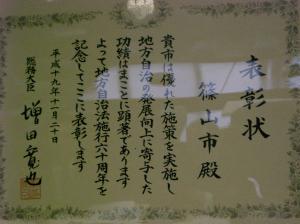 表彰状
篠山市殿
貴市は優れた施策を実施し
地方自治の発展向上に寄与した
功績はまことに顕著であります
よって地方自治法施行六十周年を
記念してここに表彰します
平成十九年十一月二十日
総務大臣 増田寛也